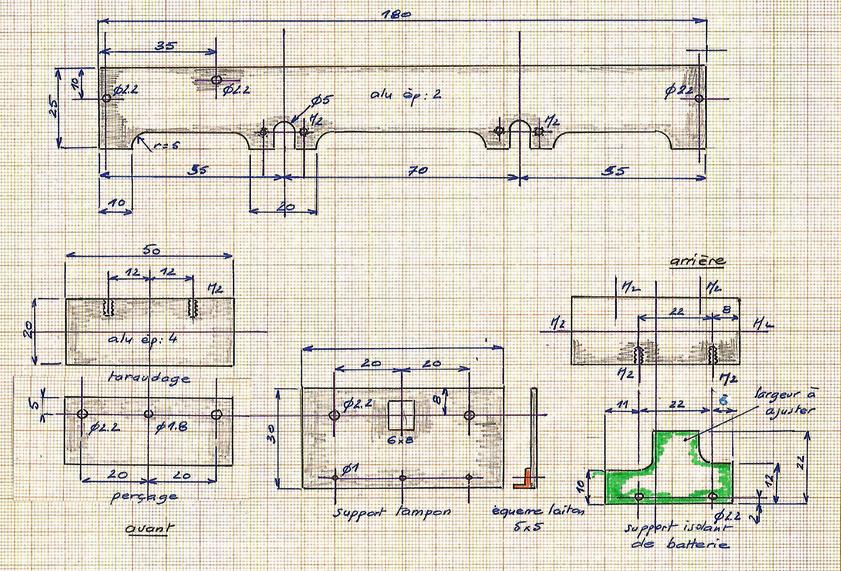 180
35
10
25
Φ2.2
Φ2.2
alu ép: 2
Φ2.2
Φ5
M2
r=5
55
70
55
10
20
50
12 12
M2
20
alu ép: 4
taraudage
5
Φ2.2 Φ1.8
20 20
perçage
avant
20 20
30
Φ2.2
8
6x8
Φ1
support tampon
équerre laiton
5x5
arrière
M2 M2
22 8
M2 M2
M2 M2
11 22 6
largeur à
ajuster
10
12
22
2
Φ2.2
support isolant
de batterie